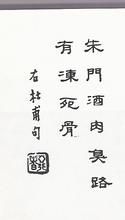 朱門酒肉臭路
有凍死骨
右杜甫句